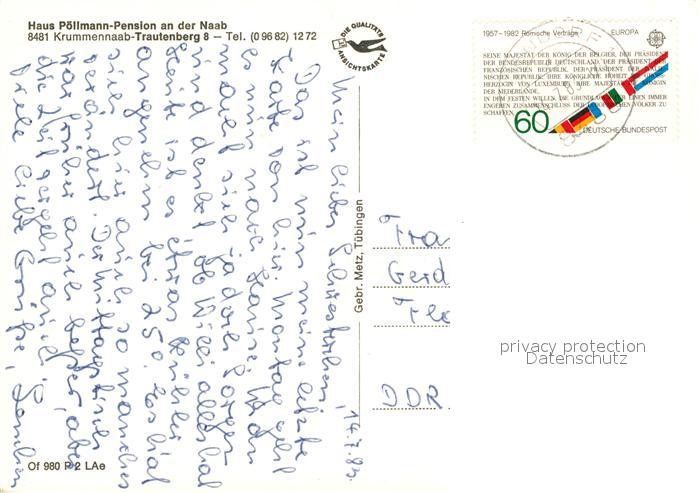 Haus Pöllmann-Pension an der Naab
8481 Krummennaab-Trautenberg 8 — Tel. (0 96 82) 12 72
DIE QUALITÄTS
ANSICHTSKARTE
1957–1982 Römische Verträge EUROPA
SEINE MAJESTÄT DER KÖNIG DER BELGIER, DER PRÄSIDENT
DER BUNDESREPUBLIK DEUTSCHLAND, DER PRÄSIDENT DER
FRANZÖSISCHEN REPUBLIK, DER PRÄSIDENT DER ITALIE-
NISCHEN REPUBLIK, IHRE KÖNIGLICHE HOHEIT DIE GROSS-
HERZOGIN VON LUXEMBURG, IHRE MAJESTÄT DIE KÖNIGIN
DER NIEDERLANDE,
IN DEM FESTEN WILLEN, DIE GRUNDLAGEN FÜR EINEN IMMER
ENGEREN ZUSAMMENSCHLUSS DER EUROPÄISCHEN VÖLKER ZU
SCHAFFEN,
60
DEUTSCHE BUNDESPOST
14.7.83.
Mein liebes Schwesterchen,
Das ist nun meine letzte
Karte von hier. Montag geht
es nun nach Hause. Ich bin
und denkt ob Willi alles hat
Heut ist es etwas kühler
angenehm bei 25°. Es hat
sich hier auch so manches
verändert. Der Mittagstisch
war früher auch besser, aber
die Zeit vergeht auch.
Viele liebe Grüße,
Gebr. Metz, Tübingen
Fra
Gerd
DDR
privacy protection
Datenschutz
Of 980 P 2 LAe